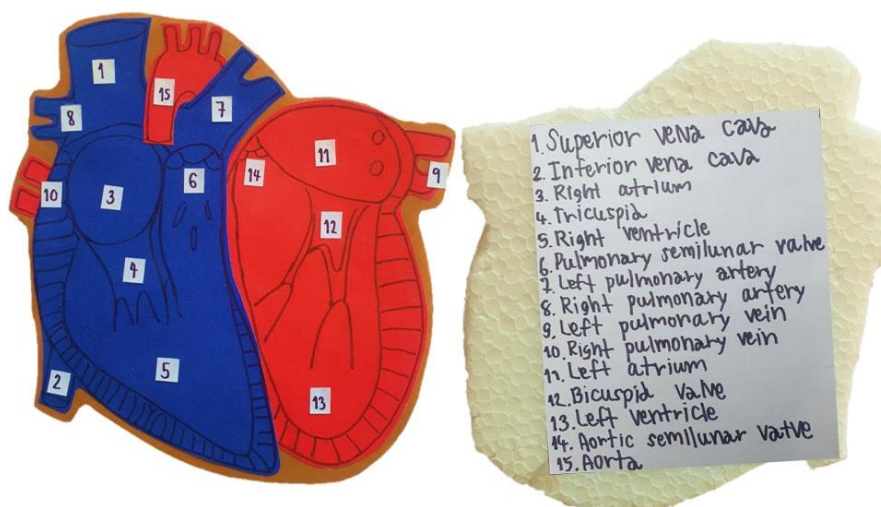 1
15
7
8
6
14
11
9
10
3
12
4
5
2
13
1. Superior vena cava
2. Inferior vena cava
3. Right atrium
4. Tricuspid
5. Right ventricle
6. Pulmonary semilunar valve
7. Left pulmonary artery
8. Right pulmonary artery
9. Left pulmonary vein
10. Right pulmonary vein
11. Left atrium
12. Bicuspid valve
13. Left ventricle
14. Aortic semilunar valve
15. Aorta